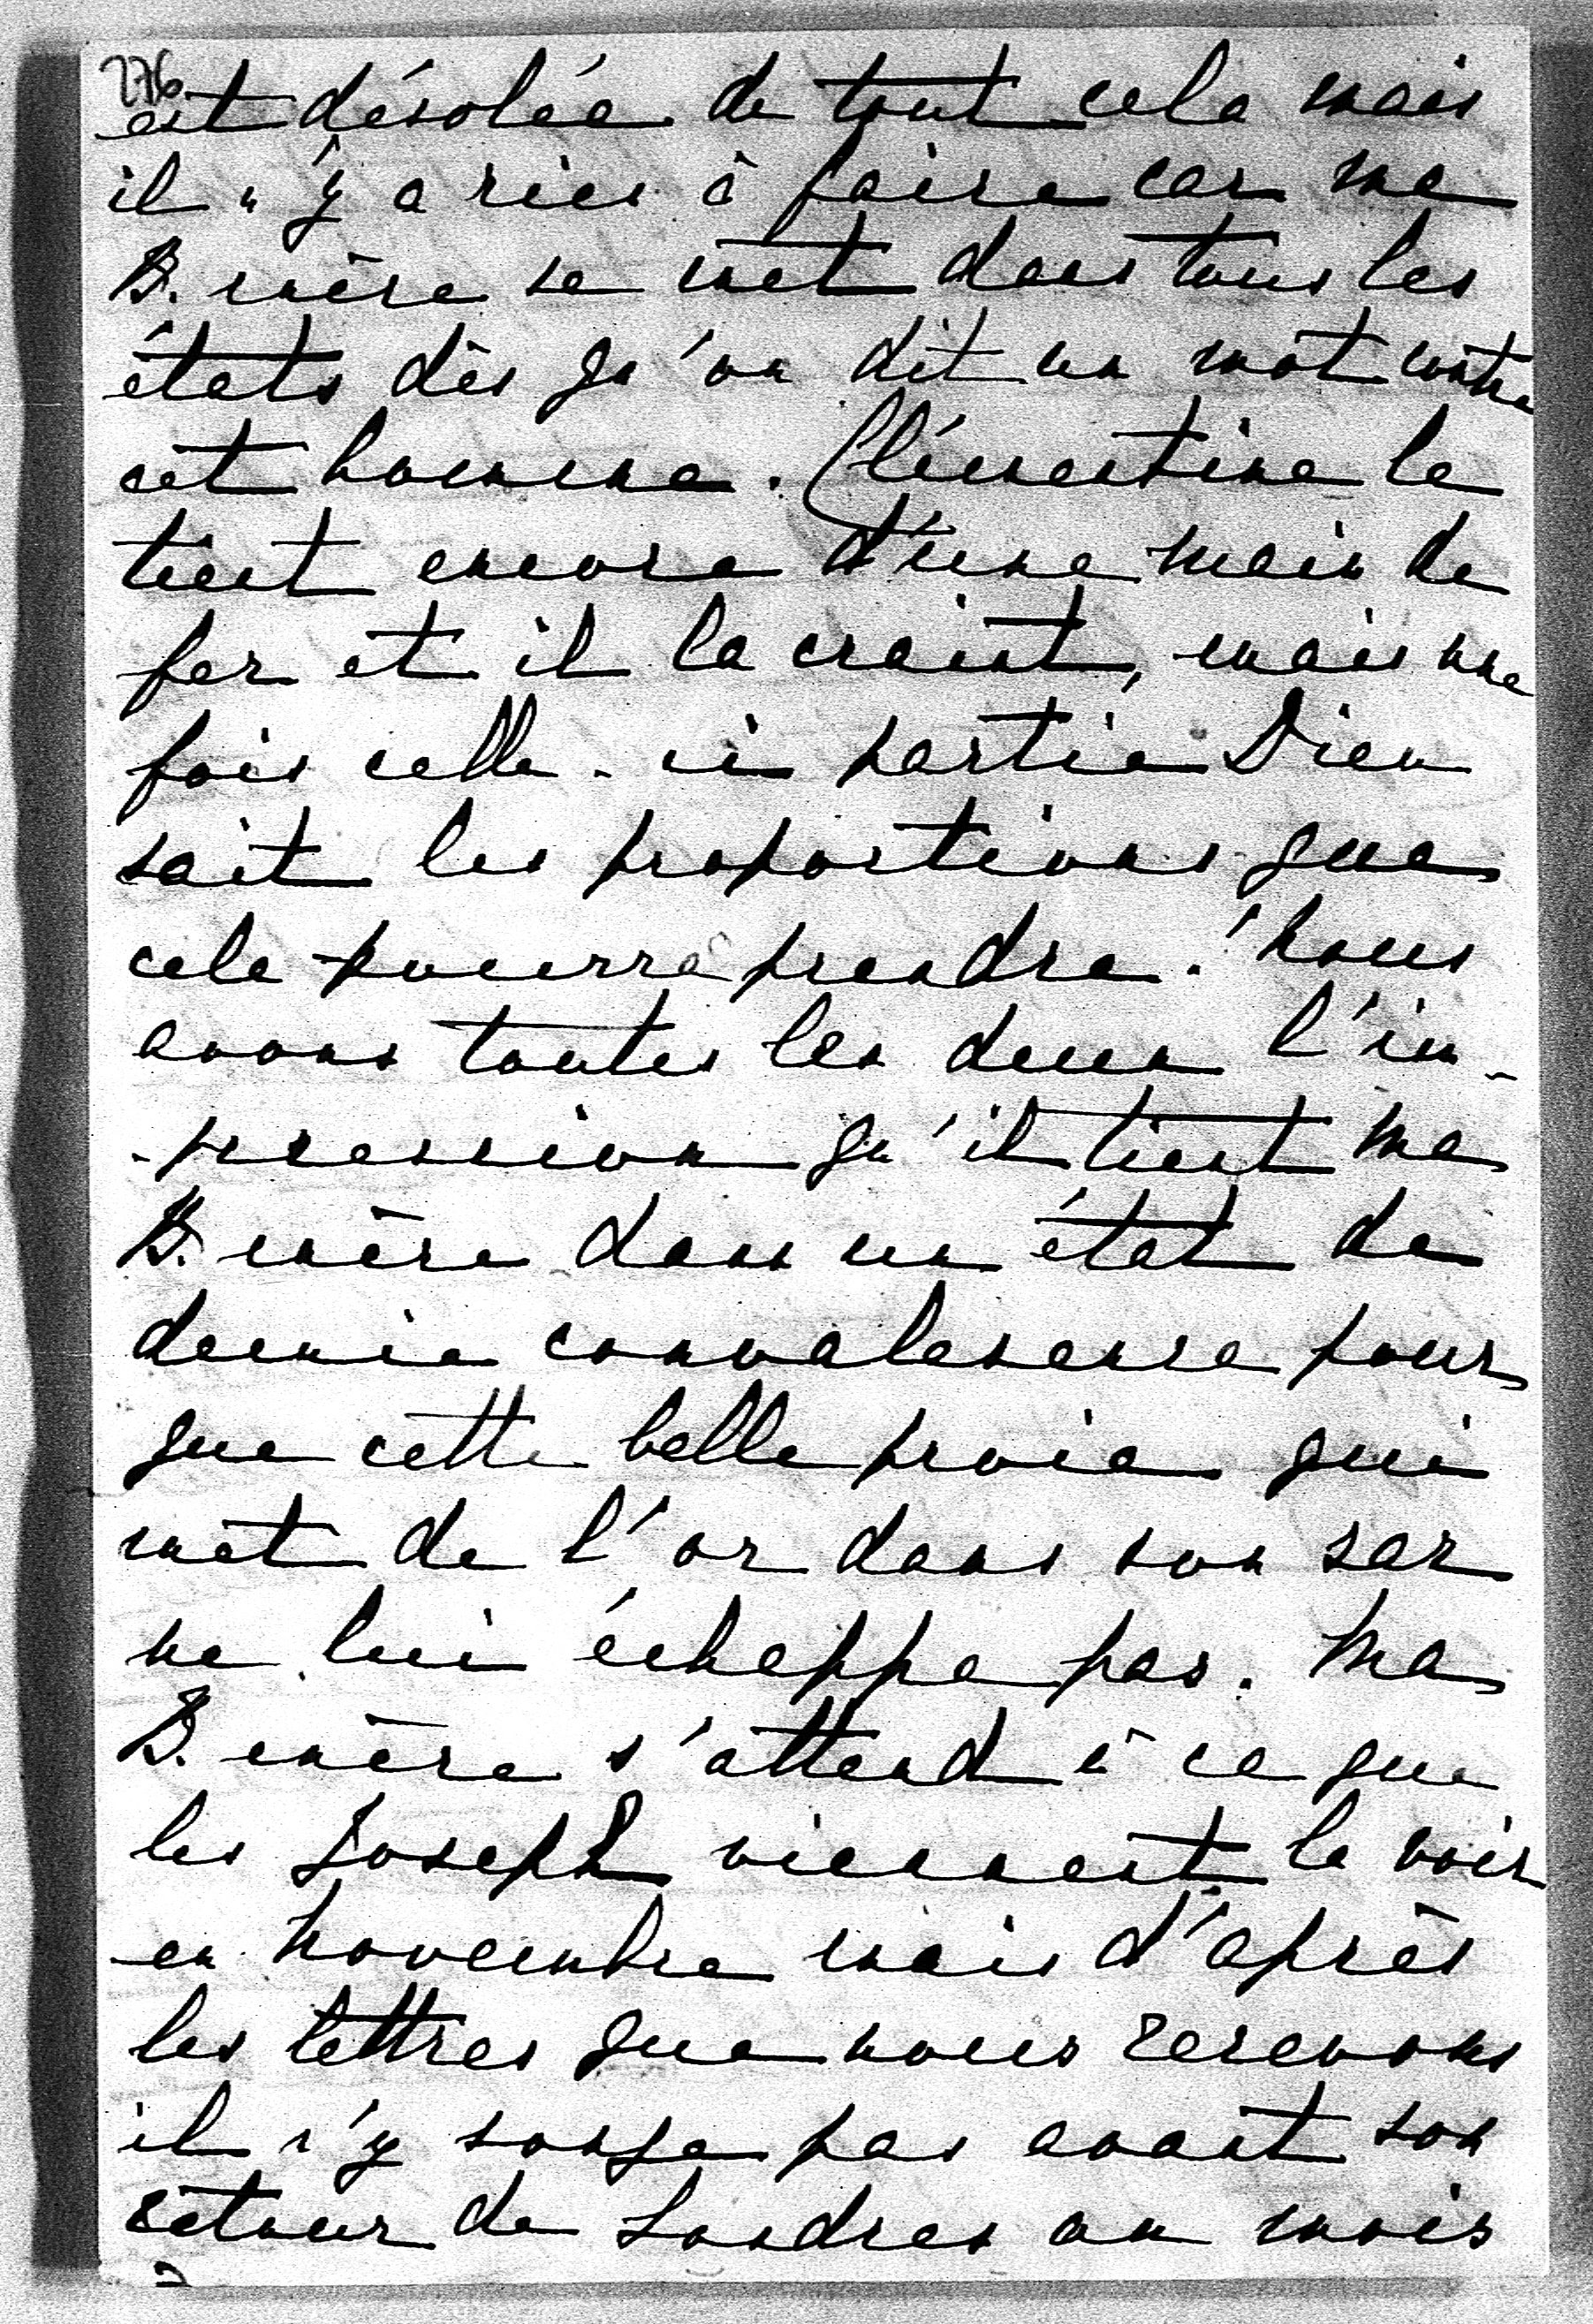 276
est désolée de tout cela mais
il n'y a rien à faire car ma
B. mère se met dans tous les
états dès qu'on dit un mot contre
cet homme. Clémentine le
tient encore d'une main de
fer et il la craint, mais une
fois celle-ci partie Dieu
sait les proportions que
cela pourra prendre! Nous
avons toutes les deux l'im-
-pression qu'il tient ma
B. mère dans un état de
demie convalesence pour
que cette belle proie qui
met de l'or dans son sac
ne lui échappe pas. Ma
B. mère s'attend à ce que
les Joseph viennent la voir
en Novembre mais d'après
les lettres que nous recevons
il n'y songe pas avant son
retour de Londres au mois